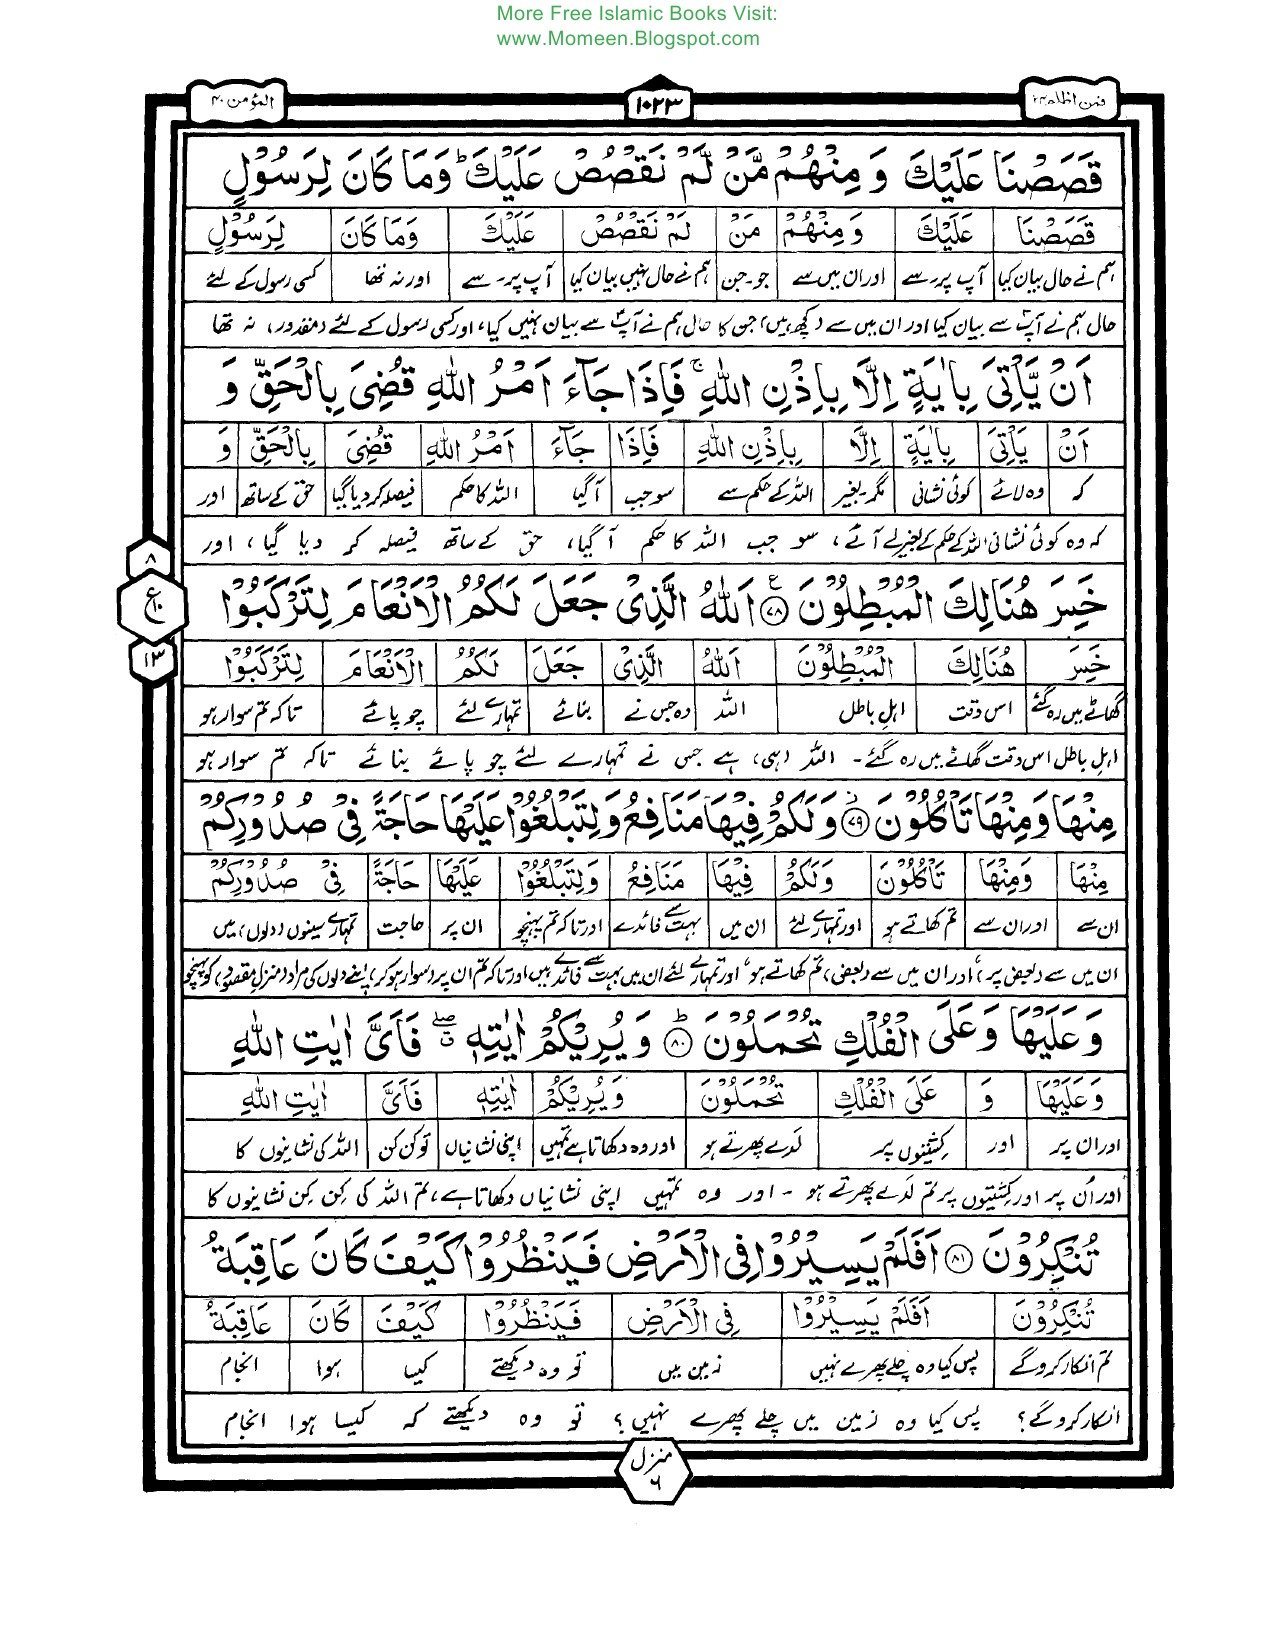 More Free Islamic Books Visit:
www.Momeen.Blogspot.com
فمن اظلم ۲۴
۱۰۲۳
المؤمن ۴۰
قَصَصْنَا عَلَيْكَ وَمِنْهُمْ مَّنْ لَّمْ نَقْصُصْ عَلَيْكَ ؕ وَمَا كَانَ لِرَسُوْلٍ
قَصَصْنَا عَلَيْكَ وَمِنْهُمْ مَنْ لَمْ نَقْصُصْ عَلَيْكَ وَمَا كَانَ لِرَسُوْلٍ
ہم نے حال بیان کیا آپ پر۔ سے اور ان میں سے جو۔جن ہم نے حال نہیں بیان کیا آپ پر۔ سے اور نہ تھا کسی رسول کے لئے
حال ہم نے آپؐ سے بیان کیا اور ان میں سے (کچھ ہیں) جن کا حال ہم نے آپؐ سے بیان نہیں کیا، اور کسی رسول کے لئے (مقدور) نہ تھا
اَنْ يَّاْتِىَ بِاٰيَةٍ اِلَّا بِاِذْنِ اللّٰهِ ۚ فَاِذَا جَآءَ اَمْرُ اللّٰهِ قُضِىَ بِالْحَقِّ وَ
اَنْ يَاْتِىَ بِاٰيَةٍ اِلَّا بِاِذْنِ اللّٰهِ فَاِذَا جَآءَ اَمْرُ اللّٰهِ قُضِىَ بِالْحَقِّ وَ
کہ وہ لائے کوئی نشانی مگر۔بغیر اللہ کے حکم سے سو جب آگیا اللہ کا حکم فیصلہ کر دیا گیا حق کے ساتھ اور
کہ وہ کوئی نشانی اللہ کے حکم کے بغیر لے آئے، سو جب اللہ کا حکم آگیا، حق کے ساتھ فیصلہ کر دیا گیا، اور
خَسِرَ هُنَالِكَ الْمُبْطِلُوْنَ ۷۸ ع اَللّٰهُ الَّذِىْ جَعَلَ لَكُمُ الْاَنْعَامَ لِتَرْكَبُوْا
۸
ع ۱۰
۱۳
خَسِرَ هُنَالِكَ الْمُبْطِلُوْنَ اَللّٰهُ الَّذِىْ جَعَلَ لَكُمُ الْاَنْعَامَ لِتَرْكَبُوْا
گھاٹے میں رہ گئے اس وقت اہلِ باطل اللہ وہ جس نے بنائے تمہارے لئے چوپائے تاکہ تم سوار ہو
اہلِ باطل اس وقت گھاٹے میں رہ گئے۔ اللہ (ہی) ہے جس نے تمہارے لئے چوپائے بنائے تاکہ تم سوار ہو
مِنْهَا وَمِنْهَا تَاْكُلُوْنَ ۷۹ ز وَلَكُمْ فِيْهَا مَنَافِعُ وَلِتَبْلُغُوْا عَلَيْهَا حَاجَةً فِىْ صُدُوْرِكُمْ
مِنْهَا وَمِنْهَا تَاْكُلُوْنَ وَلَكُمْ فِيْهَا مَنَافِعُ وَلِتَبْلُغُوْا عَلَيْهَا حَاجَةً فِىْ صُدُوْرِكُمْ
ان سے اور ان سے تم کھاتے ہو اور تمہارے لئے ان میں بہت سے فائدے اور تاکہ تم پہنچو ان پر حاجت تمہارے سینوں (دلوں) میں
ان میں سے (بعض پر)، اور ان میں سے (بعض) تم کھاتے ہو، اور تمہارے لئے ان میں بہت سے فائدے ہیں اور تاکہ تم ان پر (سوار ہو کر) اپنے دلوں کی مراد (منزلِ مقصود) کو پہنچو
وَعَلَيْهَا وَعَلَى الْفُلْكِ تُحْمَلُوْنَ ۸۰ ؕ وَيُرِيْكُمْ اٰيٰتِهٖ ۖ ق فَاَىَّ اٰيٰتِ اللّٰهِ
وَعَلَيْهَا وَ عَلَى الْفُلْكِ تُحْمَلُوْنَ وَيُرِيْكُمْ اٰيٰتِهٖ فَاَىَّ اٰيٰتِ اللّٰهِ
اور ان پر اور کشتیوں پر لدے پھرتے ہو اور وہ دکھاتا ہے تمہیں اپنی نشانیاں تو کن کن اللہ کی نشانیوں کا
اور ان پر اور کشتیوں پر تم لدے پھرتے ہو۔ اور وہ تمہیں اپنی نشانیاں دکھاتا ہے، تم اللہ کی کن کن نشانیوں کا
تُنْكِرُوْنَ ۸۱ اَفَلَمْ يَسِيْرُوْا فِى الْاَرْضِ فَيَنْظُرُوْا كَيْفَ كَانَ عَاقِبَةُ
تُنْكِرُوْنَ اَفَلَمْ يَسِيْرُوْا فِى الْاَرْضِ فَيَنْظُرُوْا كَيْفَ كَانَ عَاقِبَةُ
تم انکار کرو گے پس کیا وہ چلے پھرے نہیں زمین میں تو وہ دیکھتے کیسا ہوا انجام
انکار کرو گے؟ پس کیا وہ زمین میں چلے پھرے نہیں؟ تو وہ دیکھتے کہ کیسا ہوا انجام
منزل
۶